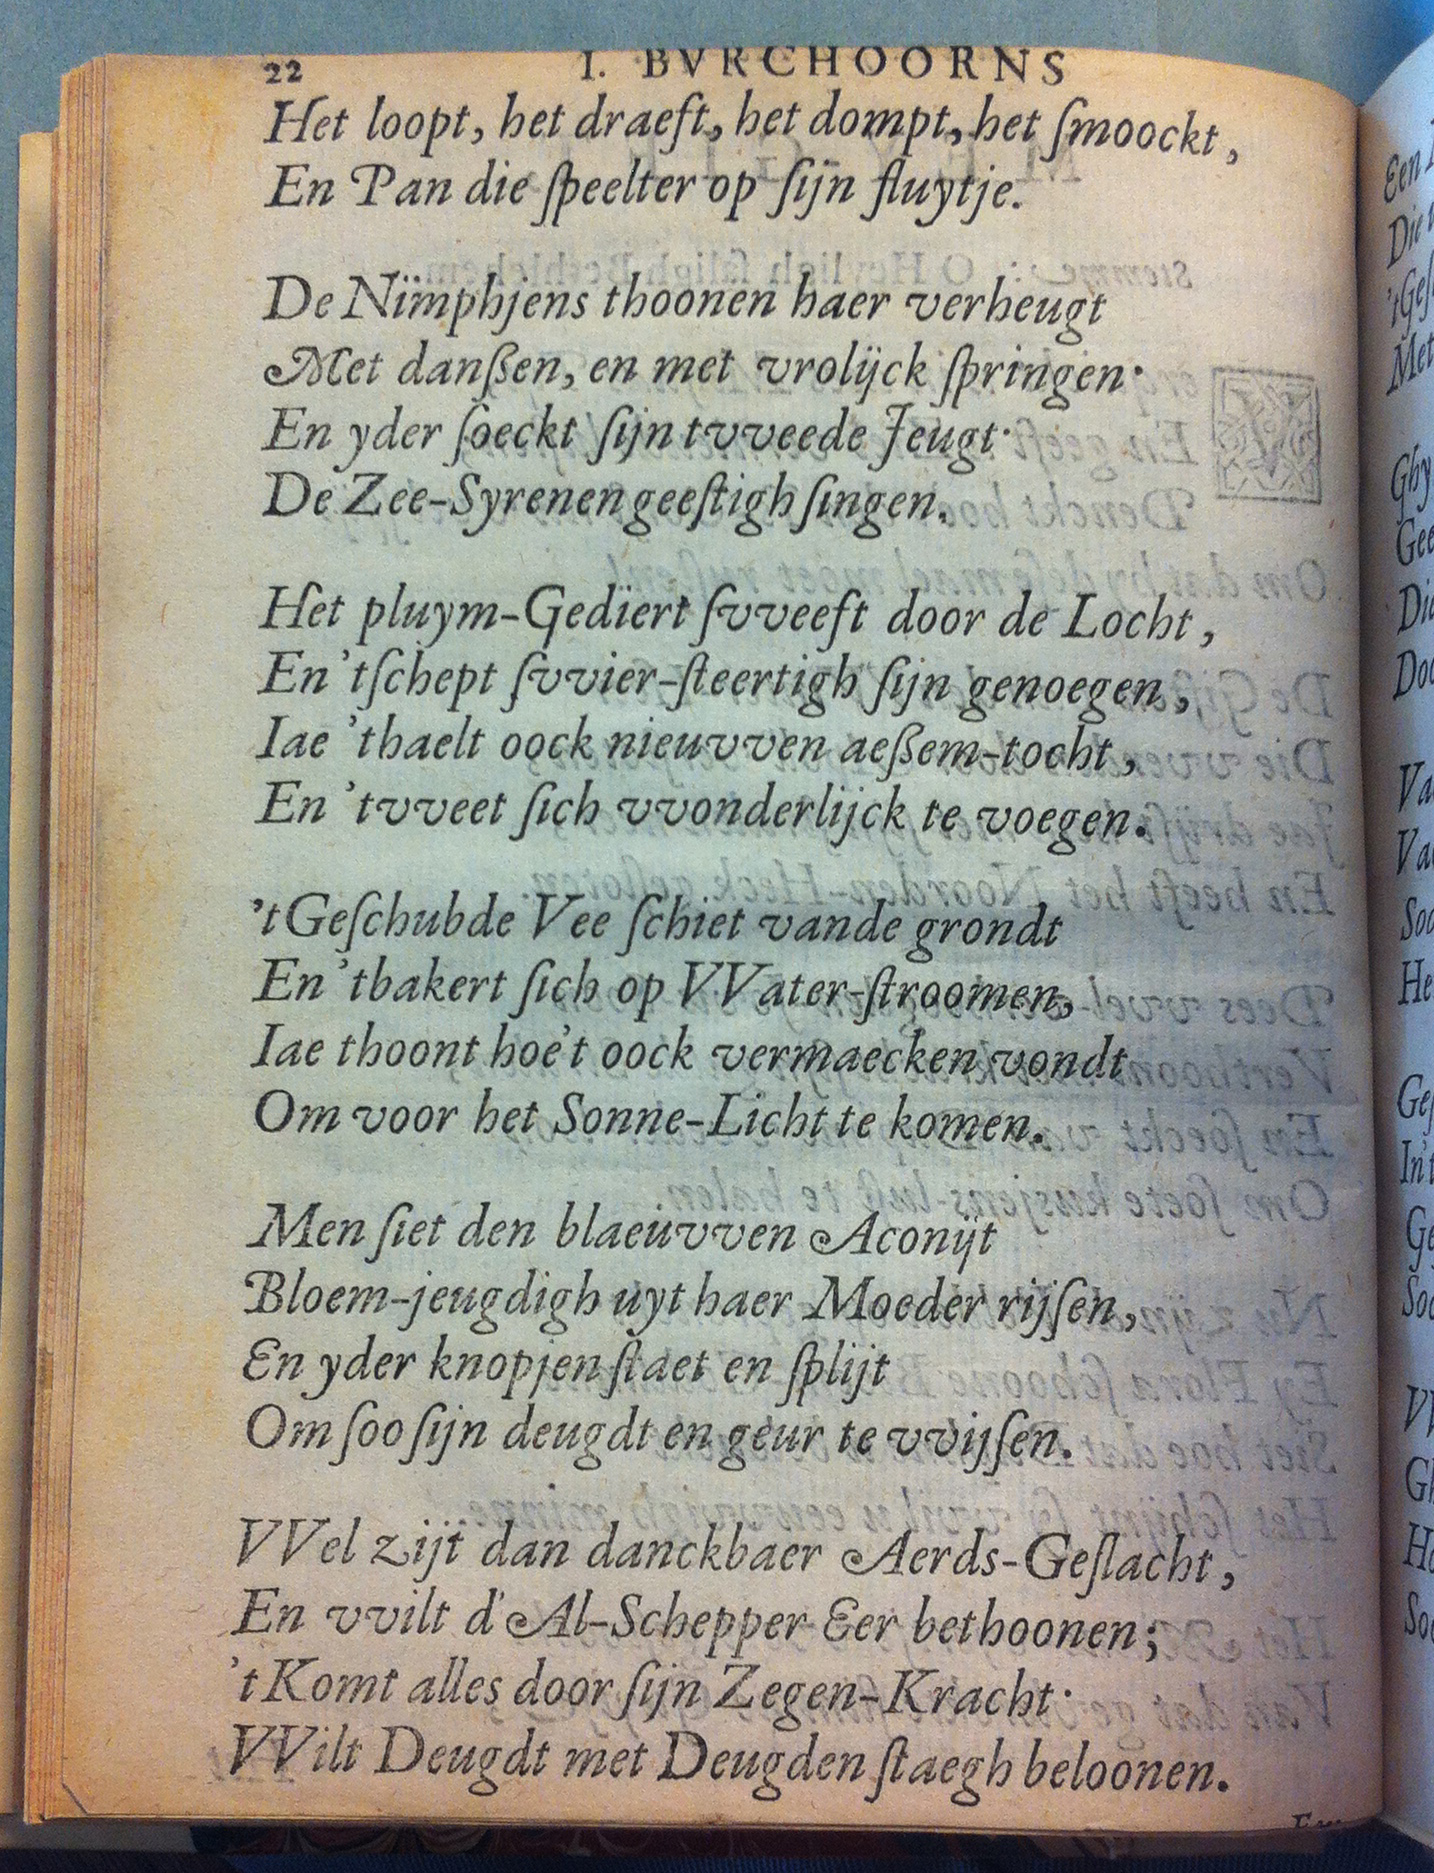 22 I. BVRCHOORNS
Het loopt, het draeft, het dompt, het ſmoockt,
En Pan die ſpeelter op ſijn fluytje.
De Nimphjens thoonen haer verheugt
Met danßen, en met vrolijck ſpringen·
En yder ſoeckt ſijn tvveede Jeugt·
De Zee-Syrenen geeſtigh ſingen.
Het pluym-Gediert ſvveeft door de Locht,
En 'tſchept ſvvier-ſteertigh ſijn genoegen,
Iae 'thaelt oock nieuvven aeßem-tocht,
En 'tvveet ſich vvonderlijck te voegen.
't Geſchubde Vee ſchiet vande grondt
En 'tbakert ſich op VVater-ſtroomen,
Iae thoont hoe't oock vermaecken vondt
Om voor het Sonne-Licht te komen.
Men ſiet den blaeuvven Aconijt
Bloem-jeugdigh uyt haer Moeder rijſen,
En yder knopjen ſlaet en ſplijt
Om ſoo ſijn deugdt en geur te vvijſen.
VVel zijt dan danckbaer Aerds-Geſlacht,
En vvilt d'Al-Schepper Eer bethoonen;
't Komt alles door ſijn Zegen-Kracht·
VVilt Deugdt met Deugden ſtaegh beloonen.